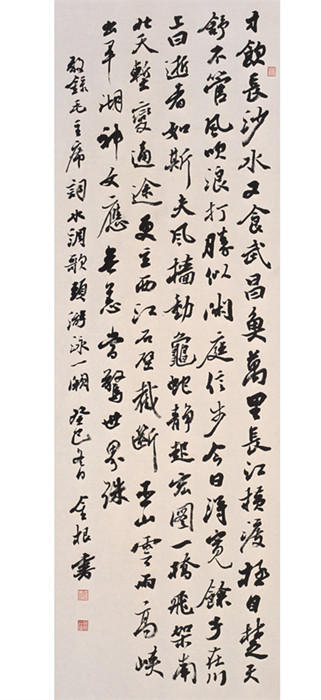 才飲長沙水又食武昌魚萬里長江横渡極目楚天
舒不管風吹浪打勝似閑庭信步今日得寬餘子在川
上曰逝者如斯夫風檣動龜蛇静起宏圖一橋飛架南
北天塹變通途更立西江石壁截斷巫山雲雨高峽
出平湖神女應無恙當驚世界殊
敬錄毛主席詞水調歌頭游泳一闋 癸巳 金根書